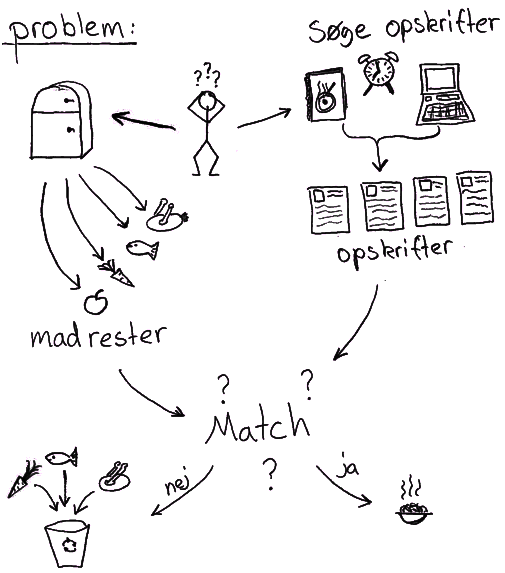 problem:
Søge opskrifter
???
opskrifter
mad rester
? ?
Match
?
nej
ja